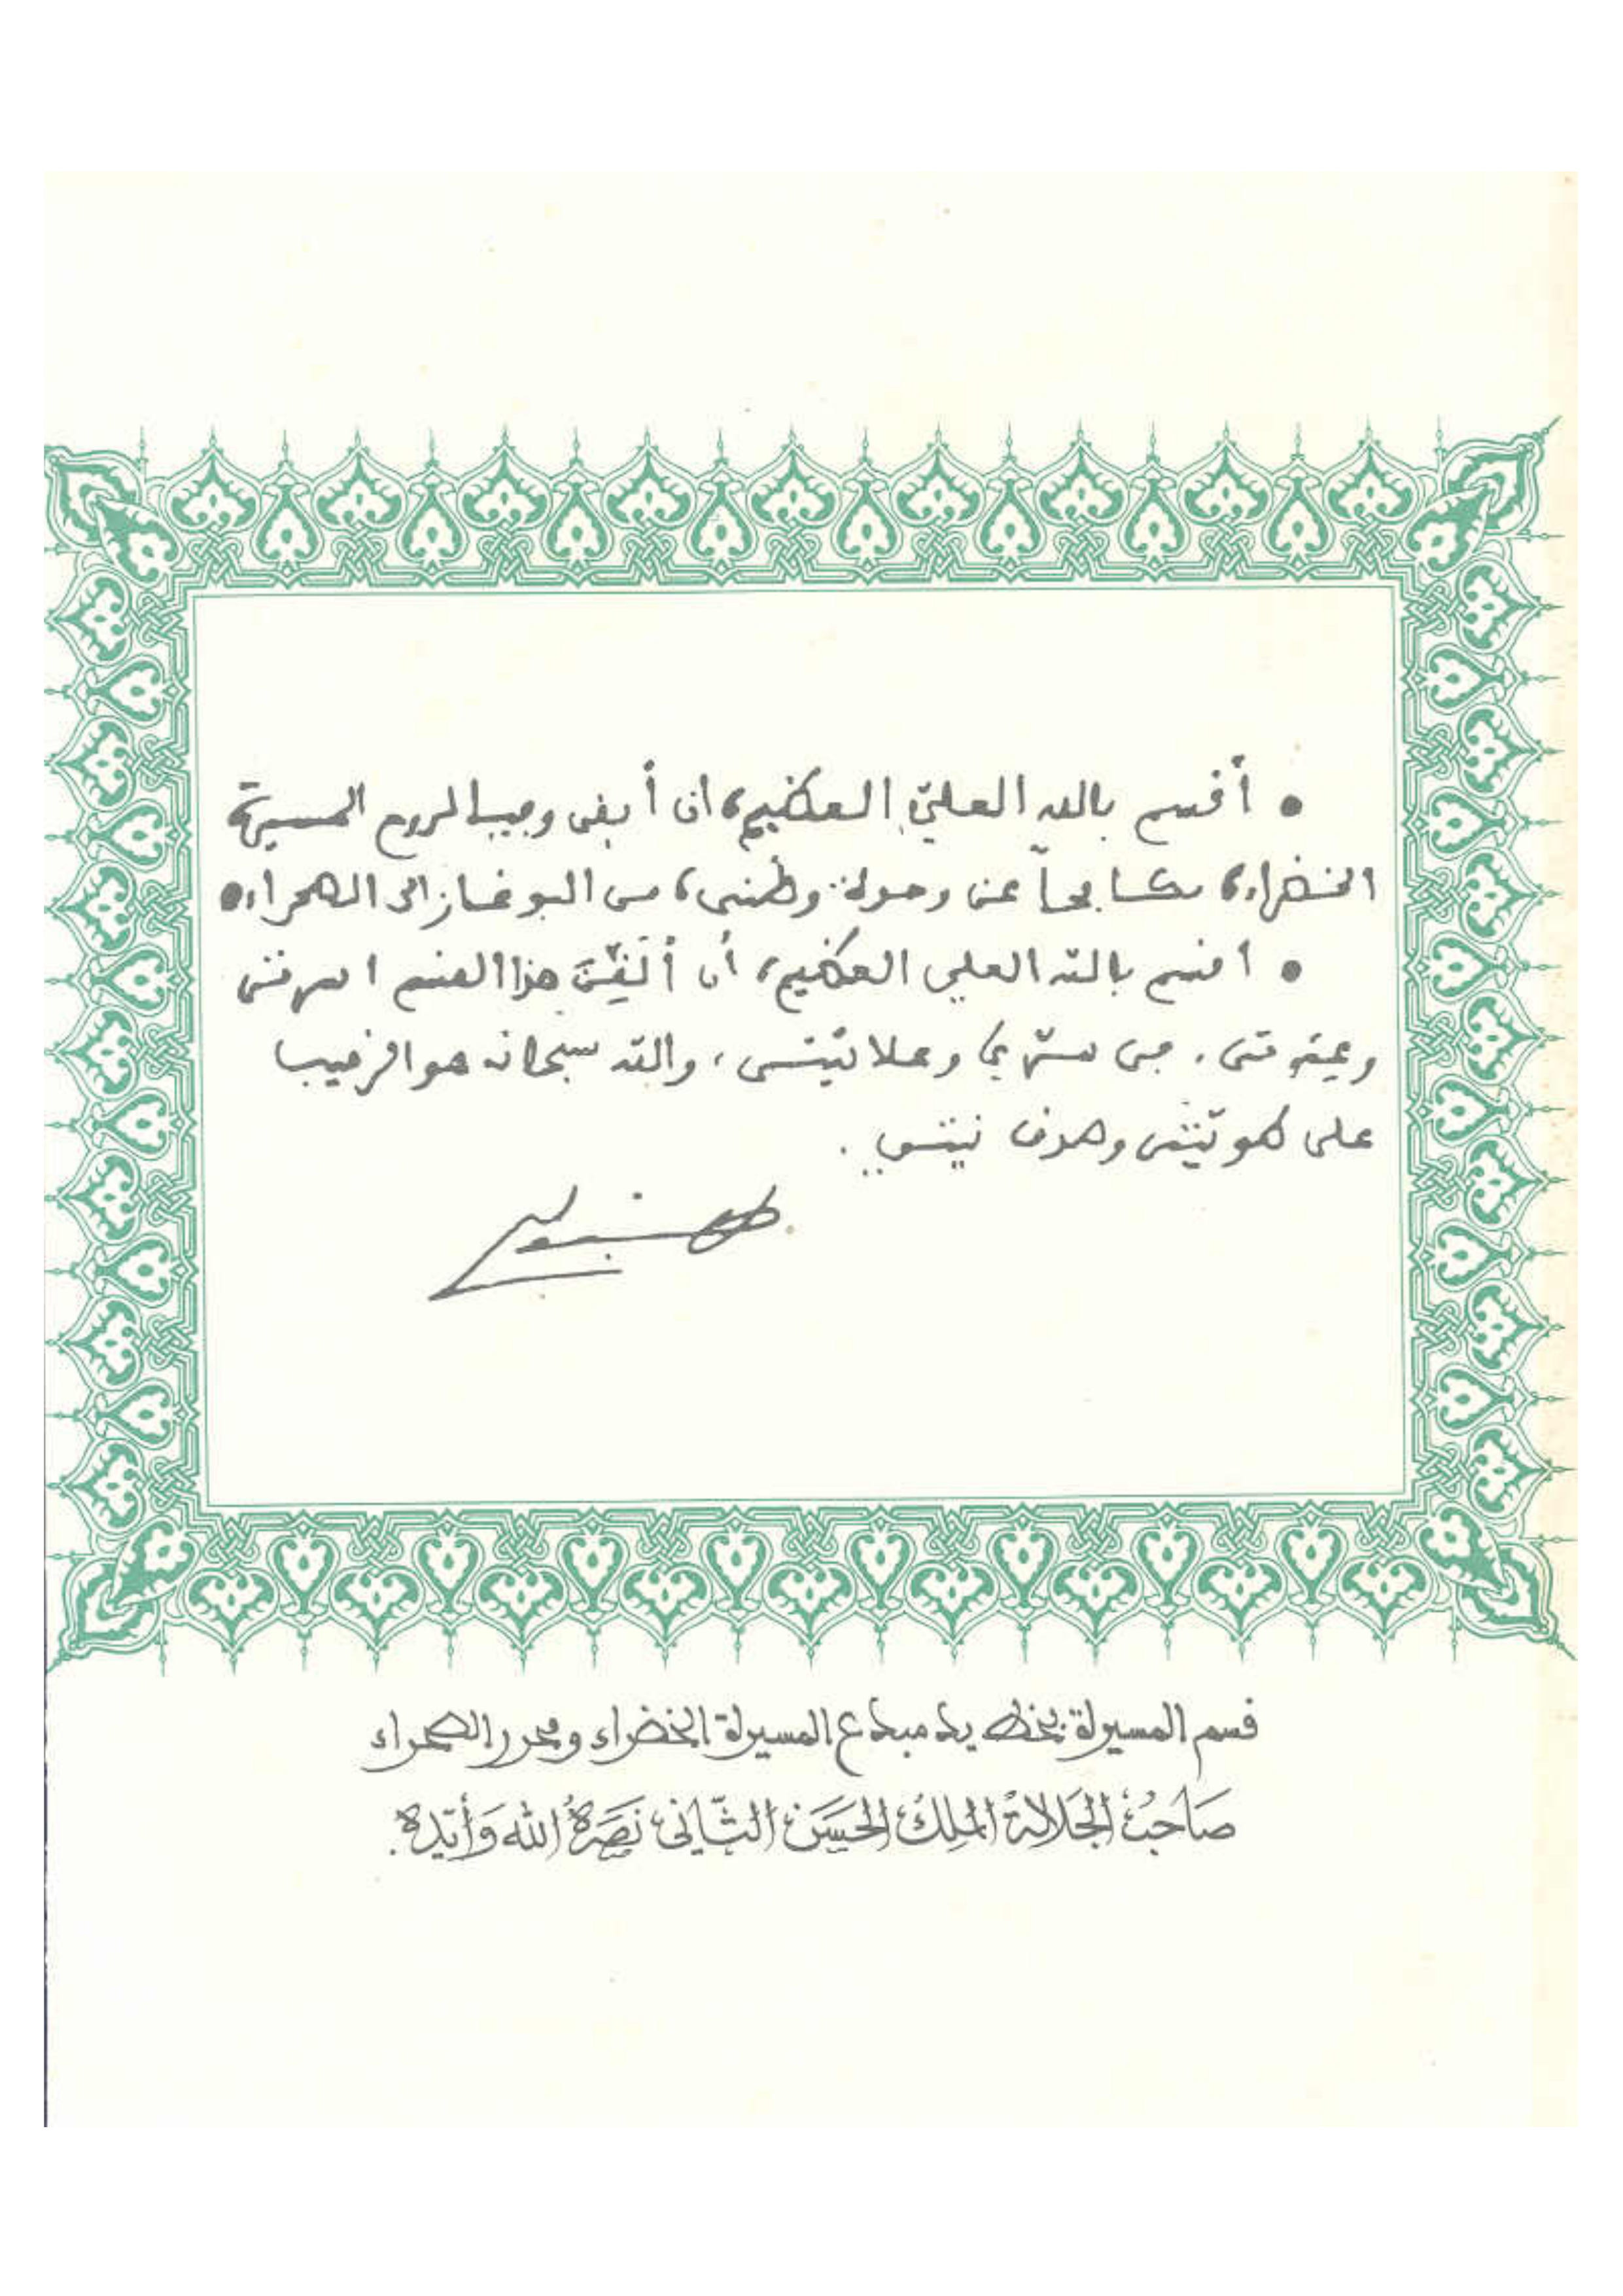 • أقسم بالله العليّ العظيم، ان أبقى وفيا لروح المسيرة
الخضراء، مكافحاً عن وحدة وطني، من البوغاز الى الصحراء.
• اقسم بالله العلي العظيم، أن أُلَقِّنَ هذا القسم اسرتي
وعترتي، في سرّي وعلانيّتي، والله سبحانه هو الرقيب
على طويّتي وصدق نيتي.
قسم المسيرة بخط يد مبدع المسيرة الخضراء ومحرر الصحراء
صَاحِبُ الجَلالَةُ المَلِكُ الحَسَن الثّانى نَصَرَهُ الله وَأَيّده.